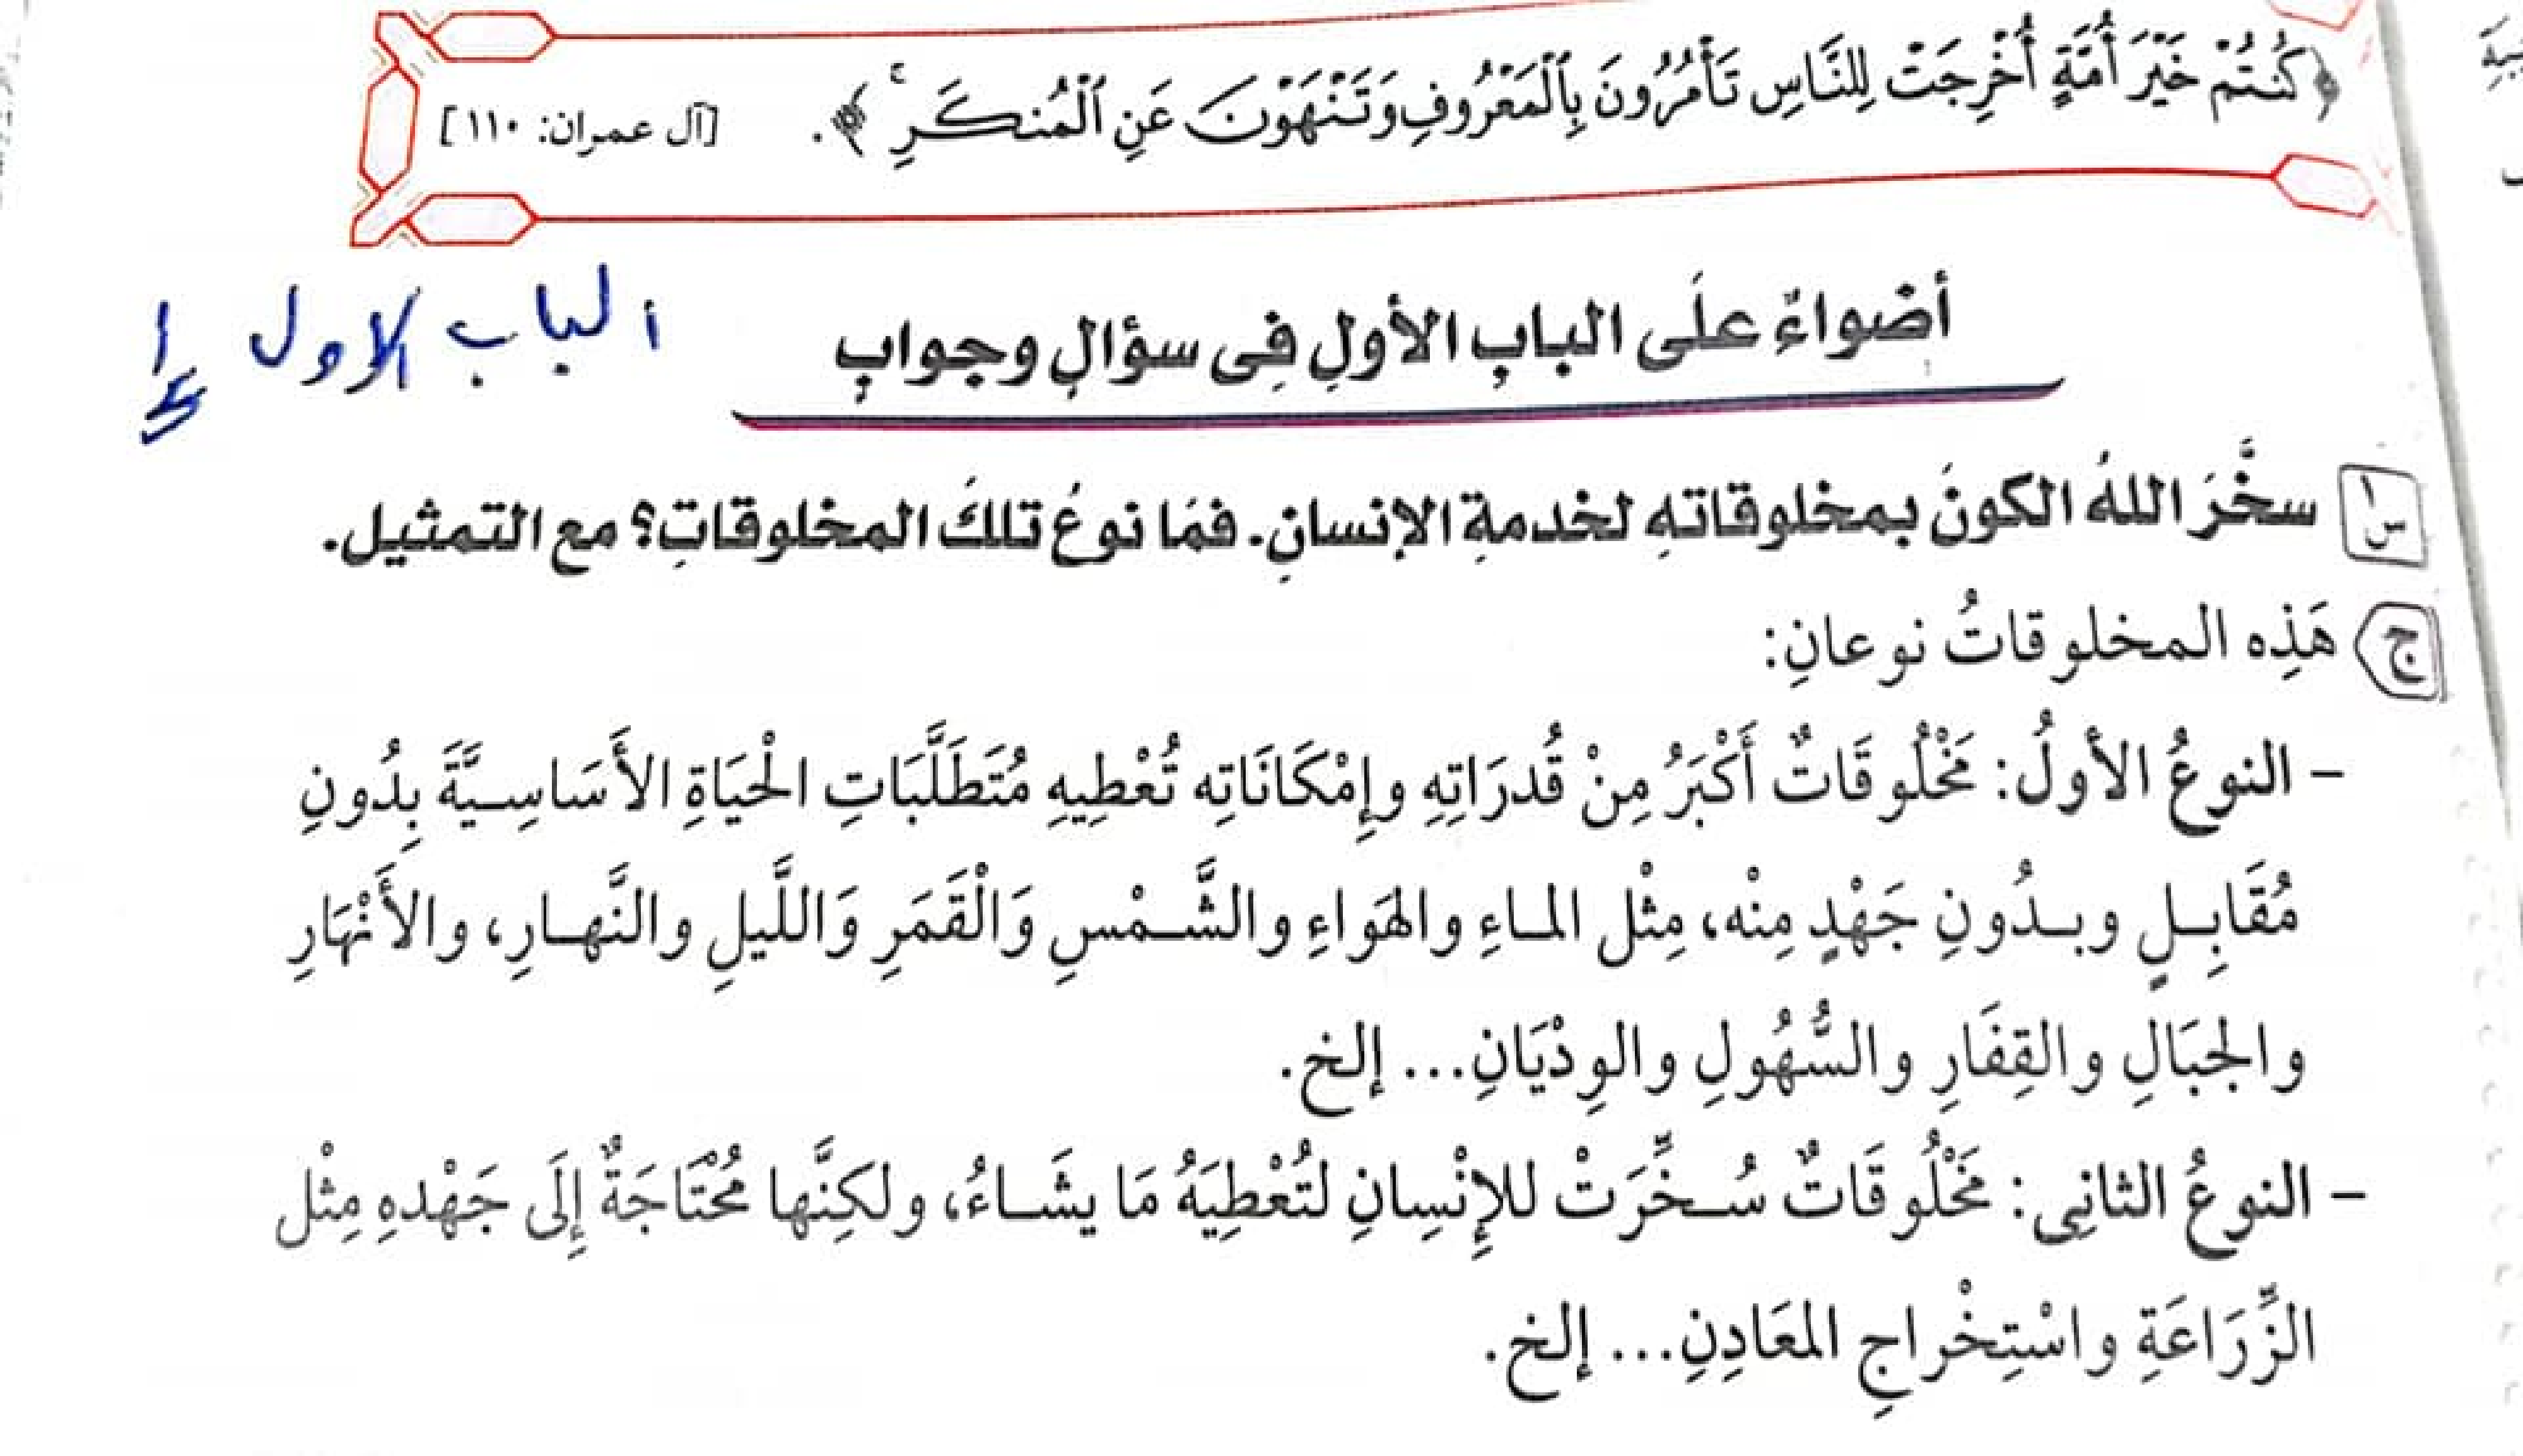 ﴿كُنتُمْ خَيْرَ أُمَّةٍ أُخْرِجَتْ لِلنَّاسِ تَأْمُرُونَ بِٱلْمَعْرُوفِ وَتَنْهَوْنَ عَنِ ٱلْمُنكَرِ ۚ ﴾. [آل عمران: ١١٠]
أضواءٌ علَى البابِ الأولِ فِى سؤالٍ وجوابٍ
الباب الاول
س١ سخَّرَ اللهُ الكونَ بمخلوقاتهِ لخدمةِ الإنسانِ. فمَا نوعُ تلكَ المخلوقاتِ؟ مع التمثيل.
ج هَذِه المخلوقاتُ نوعانِ:
- النوعُ الأولُ: مَخْلُوقَاتٌ أَكْبَرُ مِنْ قُدرَاتِهِ وإِمْكَانَاتِه تُعْطِيهِ مُتَطَلَّبَاتِ الْحَيَاةِ الأَسَاسِيَّةَ بِدُونِ
مُقَابِلٍ وبدُونِ جَهْدٍ مِنْه، مِثْل الماءِ والهَواءِ والشَّمْسِ وَالْقَمَرِ وَاللَّيلِ والنَّهارِ، والأَنْهَارِ
والجِبَالِ والقِفَارِ والسُّهُولِ والوِدْيَانِ... إلخ.
- النوعُ الثانِى: مَخْلُوقَاتٌ سُخِّرَتْ للإِنْسِانِ لتُعْطِيَهُ مَا يشَاءُ، ولكِنَّها مُحْتَاجَةٌ إِلَى جَهْدهِ مِثْل
الزِّرَاعَةِ واسْتِخْراجِ المعَادِنِ... إلخ.